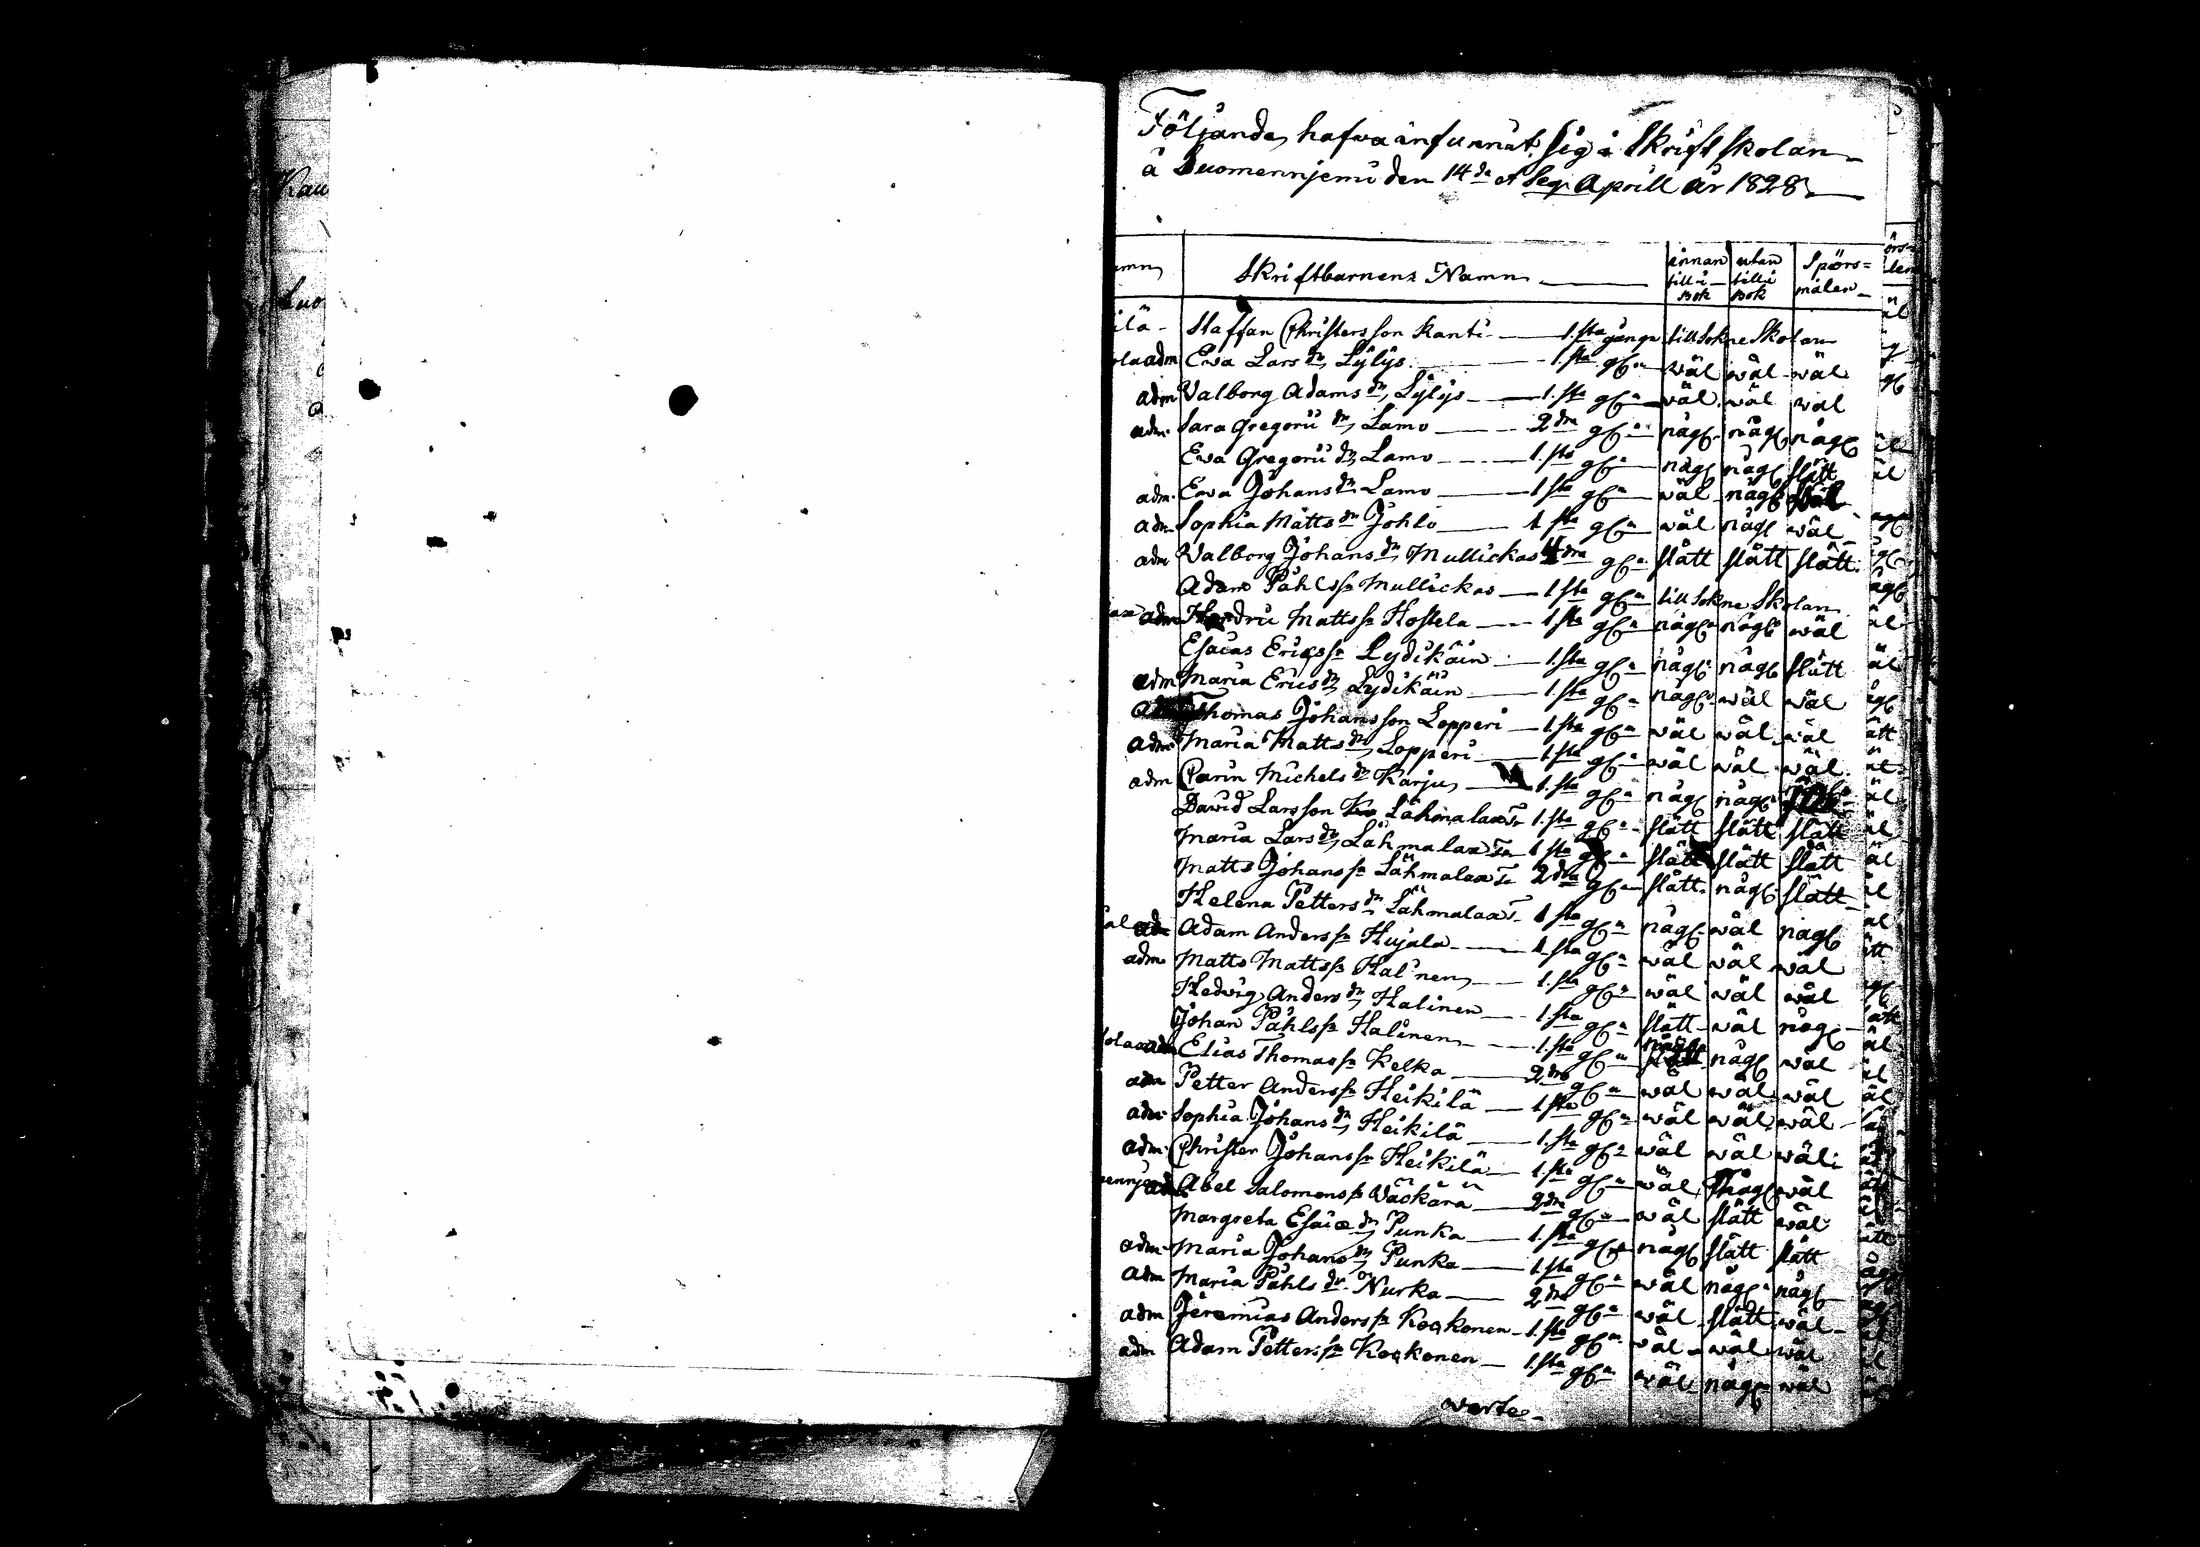 Följande hafva infunnit sig i Skriftskolan
å Suomennjemi den 14de et seq. Aprill år 1828
Skriftbarnens Namn innan till i Bok utan till i Bok Spörsmålen
Staffan Christersson Kanti 1.sta gången till Sokne Skolan
adm Ewa Lars dr Lylys 1.sta gg wäl wäl wäl
adm Walborg Adams dr Lylys 1.sta gg wäl wäl wäl
adm. Sara Gregorii dr Lamo 2dra gg någ. någ. någ.
Ewa Gregorii dr Lamo 1.sta gg någ. någ. slätt
adm. Ewa Johans dr Lamo 1sta gg wäl någ.
adm. Sophia Matts dr Johlo 1 sta gg wäl någ. wäl
adm Walborg Johans dr Mullickas dra gg slätt slätt slätt
Adam Påhls sn Mullickas 1 sta gg till Sokne Skolan
adm Matts sn Hostela 1 sta gg någ. någ. wäl
Esaias Erics sn Lydikäin 1.sta gg någ. någ. slätt
adm Maria Erics dr Lydikäin 1 sta gg någ. wäl wäl
Thomas Johansson Lopperi 1 sta gg wäl wäl wäl
adm Maria Matts dr Lopperi 1 sta gg wäl wäl wäl
adm Carin Michels dr Karju 1.sta gg någ. någ.
David Larsson Lähmalax 1.sta gg slätt slätt slätt
Maria Lars dr Lähmalax 1 sta gg slätt slätt slätt
Matts Johans sn Lähmalax 2dra gg slätt någ. slätt
Helena Petters dr Lähmalax 1 sta gg någ. wäl någ.
adm Adam Anders sn Hujala 1 sta gg wäl wäl wäl
adm Matts Matts sn Halinen 1.sta gg wäl wäl wäl
Hedwig Anders dr Halinen 1.sta gg slätt wäl någ.
Johan Påhls sn Halinen 1.sta gg någ. wäl
adm Elias Thomas sn Kelka 2dra gg wäl wäl wäl
adm Petter Anders sn Heikilä 1 sta gg wäl wäl wäl
adm Sophia Johans dr Heikilä 1.sta gg wäl wäl wäl
adm. Christer Johans sn Heikilä 1.sta gg wäl någ. wäl
Abel Salomons sn Väskärä 2dra gg wäl slätt wäl
Margreta Esaiæ dr Punka 1.sta gg någ. slätt slätt
adm. Maria Johans dr Punka 1.sta gg wäl någ. någ.
adm Maria Påhls dr Nurka 2dra gg wäl slätt wäl
adm Jeremias Anders sn Kockonen 1.sta gg wäl wäl wäl
adm Adam Petters sn Kockonen 1.sta gg wäl någ. wäl
verte